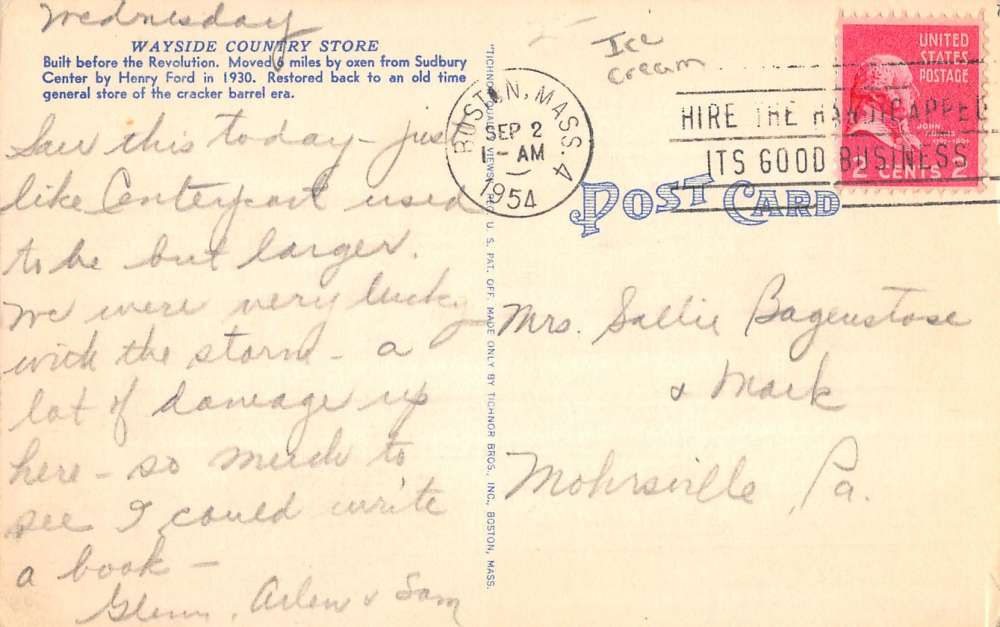 Wednesday
WAYSIDE COUNTRY STORE
Built before the Revolution. Moved 6 miles by oxen from Sudbury
Center by Henry Ford in 1930. Restored back to an old time
general store of the cracker barrel era.
Saw this today - just
like Centerport used
to be but larger.
We were very lucky
with the storm - a
lot of damage up
here - so much to
see I could write
a book -
Glenn, Arlen & Sam
"TICHNOR QUALITY VIEWS," REG. U. S. PAT. OFF. MADE ONLY BY TICHNOR BROS., INC., BOSTON, MASS.
Ice
cream
BOSTON, MASS. 4
SEP 2
AM
1954
HIRE THE HANDICAPPED
ITS GOOD BUSINESS
UNITED
STATES
POSTAGE
JOHN ADAMS
2 CENTS 2
POST CARD
Mrs. Sallie Bagenstose
& Mark
Mohrsville, Pa.